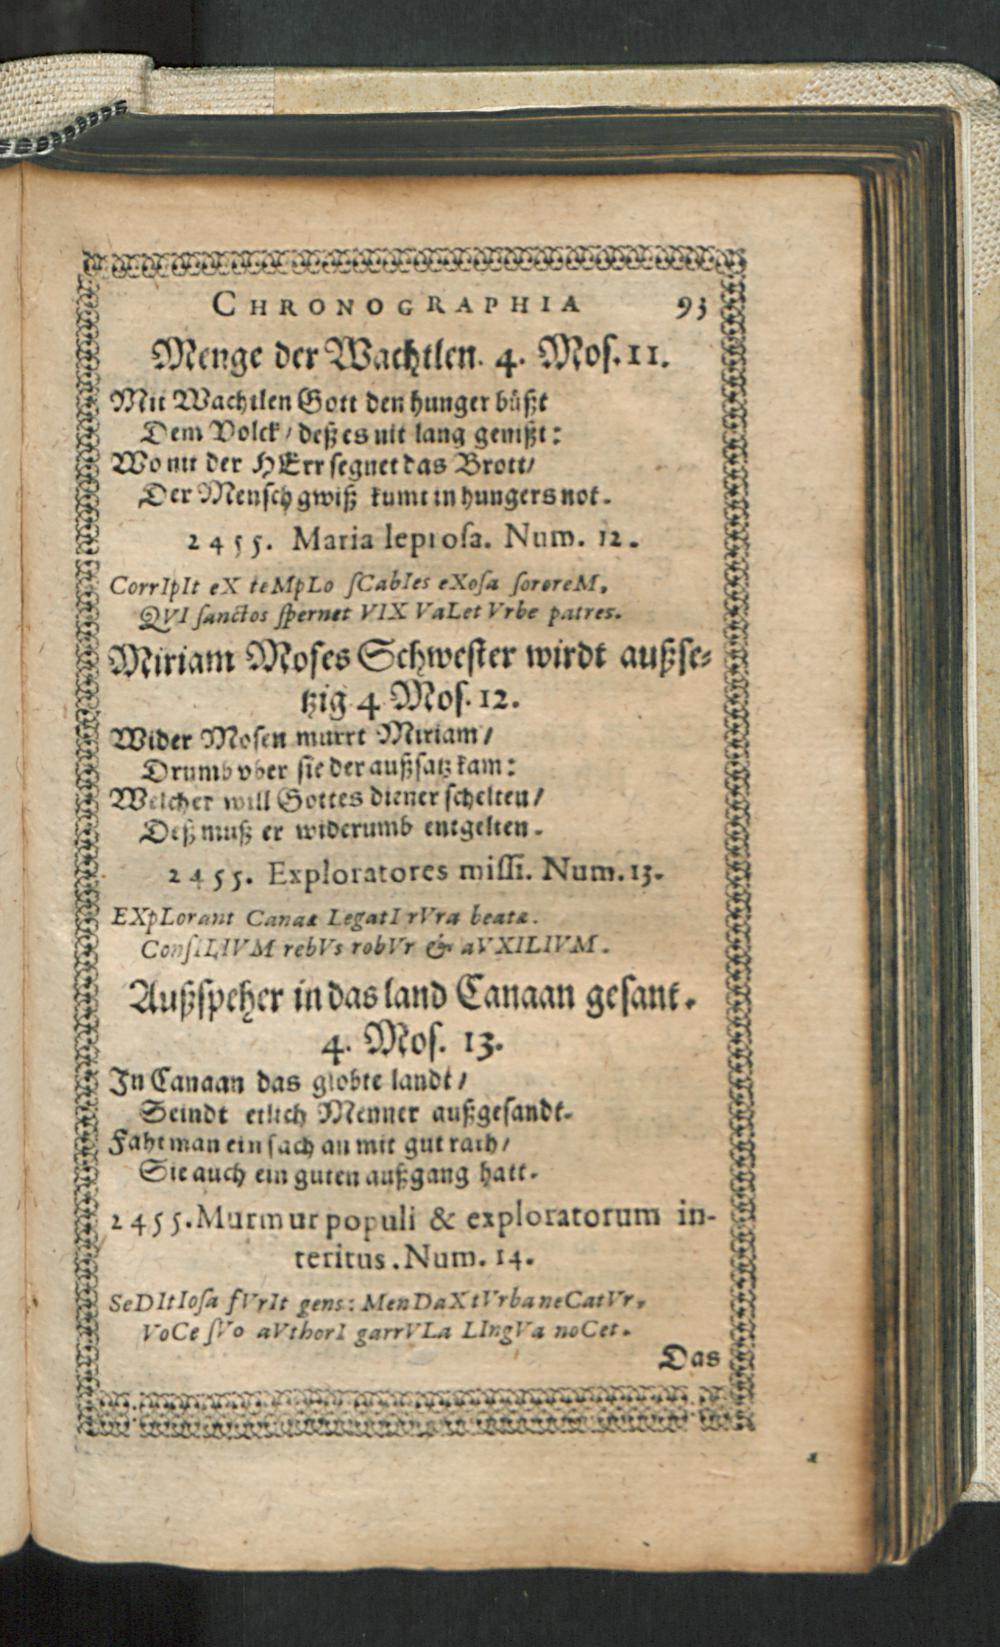 CHRONOGRAPHIA 93
Menge der Wachtlen. 4. Mos. 11.
Mit Wachtlen Gott den hunger büßt
Dem Volck / deß es nit lang genißt:
Wo nit der HErr segnet das Brott/
Der Mensch gwiß kumt in hungers not.
2455. Maria leprosa. Num. 12.
CorrIpIt eX teMpLo ſCabIes eXoſa ſororeM,
QVI ſanctos ſpernet VIX VaLet Vrbe patres.
Miriam Moses Schwester wirdt außse-
tzig 4 Mos. 12.
Wider Mosen murrt Miriam/
Drumb vber sie der außsatz kam:
Welcher will Gottes diener schelten/
Deß muß er widerumb entgelten.
2455. Exploratores miſſi. Num. 13.
EXpLorant Canaæ LegatI rVra beatæ.
ConſiLIVM rebVs robVr & aVXILIVM.
Außspeher in das land Canaan gesant.
4. Mos. 13.
In Canaan das globte landt/
Seindt etlich Menner außgesandt.
Faht man ein sach an mit gut rath/
Sie auch ein guten außgang hatt.
2455. Murmur populi & exploratorum in-
teritus. Num. 14.
SeDItIoſa fVrIt gens: MenDaX tVrba neCatVr,
VoCe ſVo aVthorI garrVLa LIngVa noCet.
Das